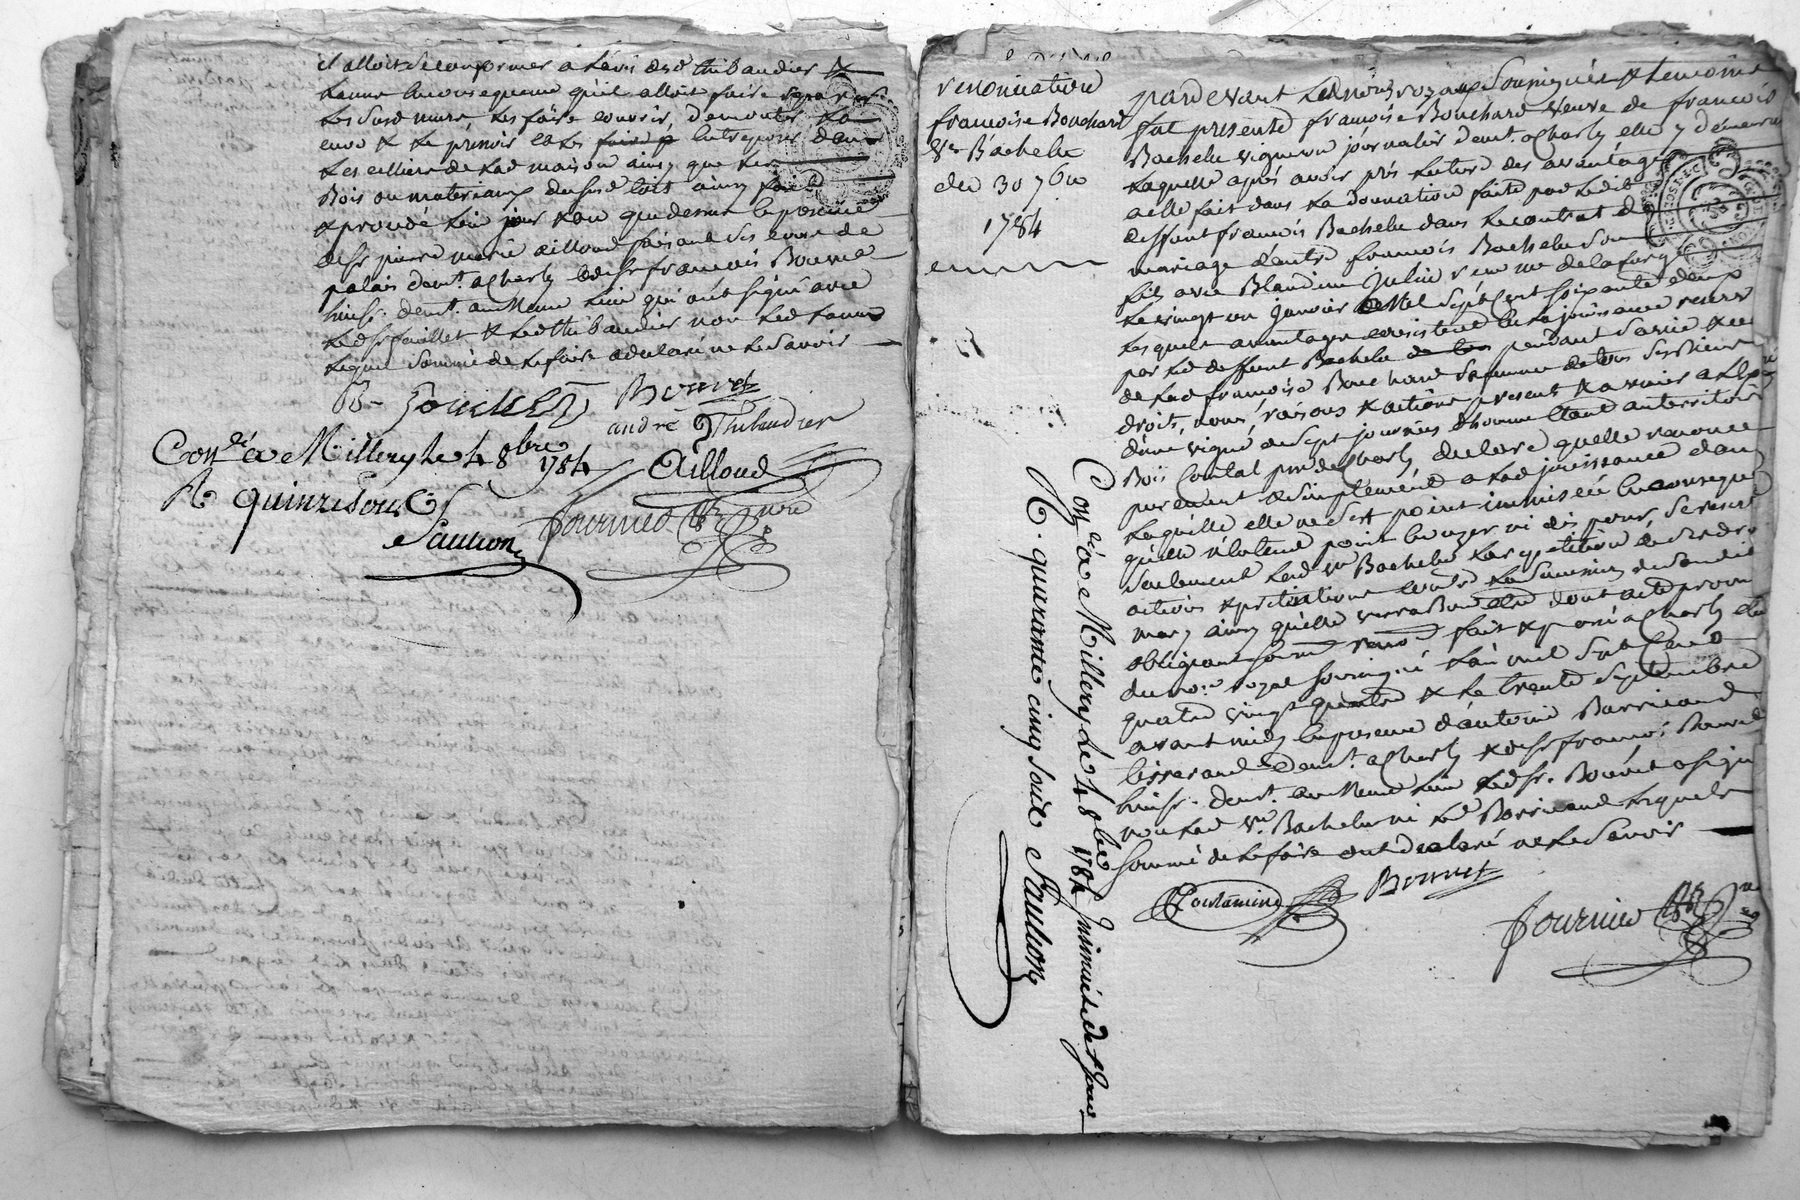 il alloit se conformer a lavis dud thibaudier &
Lanne en consequence quil alloit faire separer
Les susd murs, les faire couvrir, demonter La
cuve & Le pressoir et les entreposer dans
Les celliers de lad maison ainsy que les
Bois ou materiaux du susd toit ainsy fait
& procedé led jour & an que dessus en presence
de sr pierre marie ailloud faisant ses cours de
palais demt. a Charly et de sr francois Bonnet
huissr. demt. au meme lieu qui ont signé avec
Led sr fouillet & led thibaudier non led Lanne
Lequel sommé de le faire a declaré ne le savoir
Bonnet
andré Thibaudier
Con.lé a Millery le 4 8bre 1784
Ailloud
R. quinze sous
Saulnon
fournier nre
renonciation
francoise Bouchard
Ve Bachelu
du 30 7bre
1784
pardevant Le notre royal soussigné & temoins
fut presente francoise Bouchard veuve de francois
Bachelu vigneron journalier demt. a Charly elle y demeurant
Laquelle après avoir pris lecture des avantages
a elle fait dans La donnation faite par ledit
deffunt francois Bachelu dans le contrat de
mariage d'autre francois Bachelu son
fils avec Blandine Julin reçu me delaforge
Le vingt un janvier Mil sept Cent soixante deux
Lesquels avantages consistent en la jouissance reservée
par led deffunt Bachelu pendant sa vie & celle
de lad francoise Bouchard sa femme de tous ses Biens
droits, noms, raisons & actions present & a venir
d'une vigne de sept journées d'homme situé au territoire
Bois Contal psse de Charly declare quelle renonce
purement & simplement a lad jouissance dans
Laquelle elle ne s'est point immiscée en consequence
quelle n'entend point en user ni dis poser, se reservant
seulement lad ve Bachelu La repetition de ses droits
actions & pretentions contre La succession de son dit
mary ainsy quelle verra Bon etre dont acte prom
obligeant soum renon fait & passé a Charly etude
du nore royal soussigné L'an mil sept Cent
quatre vingt quatre & Le trente septembre
avant midy en presence d'antoine Barricand
tisserand demt. a Charly & de sr francois Bonnet
huissr. demt. au meme lieu led sr. Bonnet a signé
non lad ve. Bachelu ni led Barricand lesquels
sommé de le faire ont declaré ne le savoir
Bonnet
fournier
Con.lé a Millery le 4 8bre 1784 insinué led jour
R. quarante cinq sous Saulnon